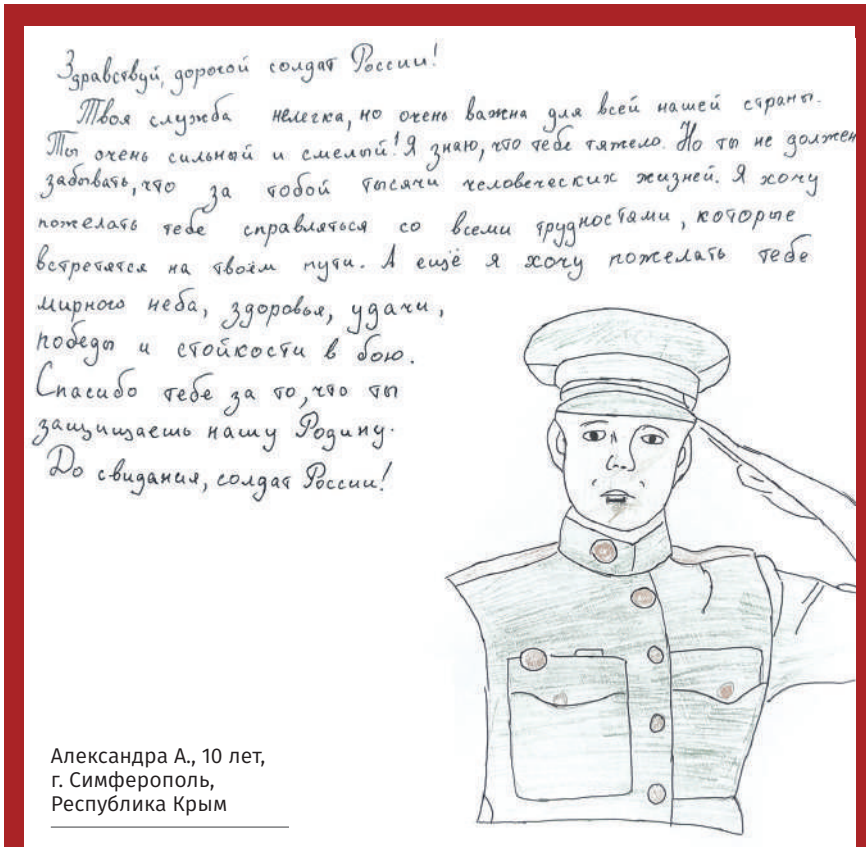 Здравствуй, дорогой солдат России!
Твоя служба нелегка, но очень важна для всей нашей страны.
Ты очень сильный и смелый! Я знаю, что тебе тяжело. Но ты не должен
забывать, что за тобой тысячи человеческих жизней. Я хочу
пожелать тебе справляться со всеми трудностями, которые
встретятся на твоём пути. А ещё я хочу пожелать тебе
мирного неба, здоровья, удачи,
победы и стойкости в бою.
Спасибо тебе за то, что ты
защищаешь нашу Родину.
До свидания, солдат России!
Александра А., 10 лет,
г. Симферополь,
Республика Крым